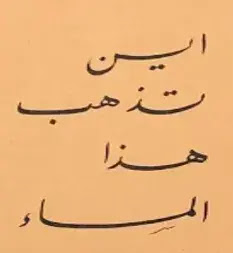 اين
تذهب
هذا
المساء